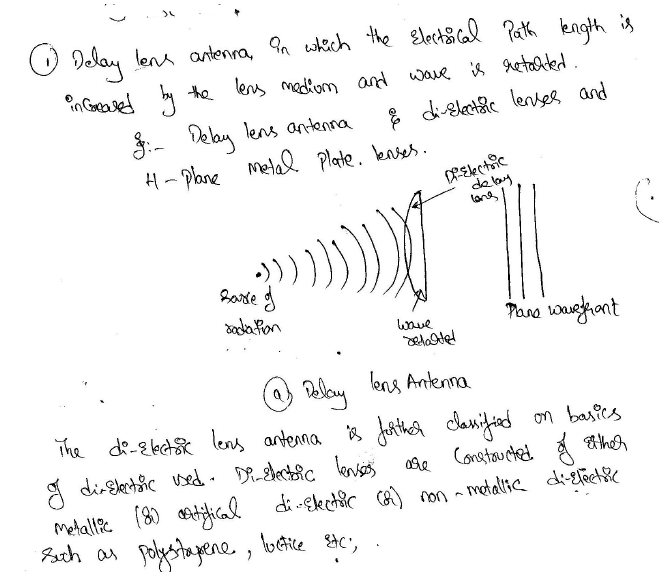 ① Delay lens antenna, in which the Electrical Path length is
increased by the lens medium and wave is retarded.
g:- Delay lens antenna & di-Electric lenses and
H - Plane metal Plate. lenses.
Di-Electric
delay
lens
Source of
radiation
wave
retarded
Plane wavefront
(a) Delay lens Antenna
The di-Electric lens antenna is further classified on basics
of di-Electric used. Di-Electric lenses are Constructed of Either
metallic (or) artifical di-Electric (or) non-metallic di-Electric
Such as polystyrene, luctice etc;,